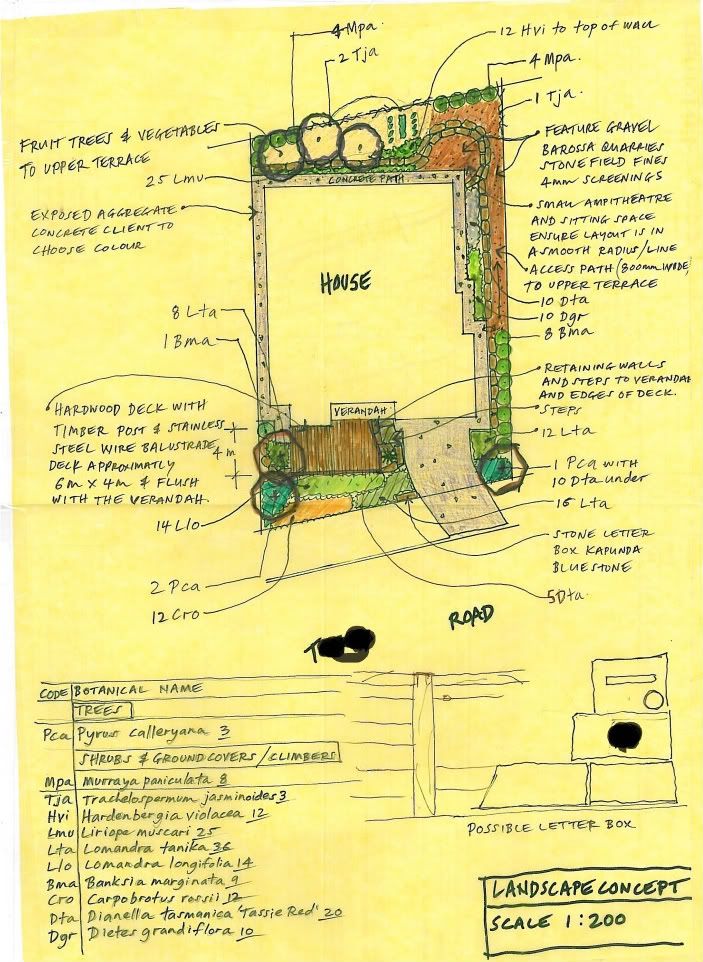 4 Mpa
2 Tja
12 Hvi to top of wall
4 Mpa.
1 Tja.
FRUIT TREES & VEGETABLES
TO UPPER TERRACE
25 Lmu
CONCRETE PATH
FEATURE GRAVEL
BAROSSA QUARRIES
STONE FIELD FINES
4mm SCREENINGS
EXPOSED AGGREGATE
CONCRETE CLIENT TO
CHOOSE COLOUR
SMALL AMPITHEATRE
AND SITTING SPACE
ENSURE LAYOUT IS IN
A SMOOTH RADIUS/LINE
ACCESS PATH (800mm WIDE)
TO UPPER TERRACE
HOUSE
10 Dta
10 Dgr
8 Bma
8 Lta
1 Bma
RETAINING WALLS
AND STEPS TO VERANDAH
AND EDGES OF DECK.
STEPS
VERANDAH
HARDWOOD DECK WITH
TIMBER POST & STAINLESS
STEEL WIRE BALUSTRADE,
DECK APPROXIMATLY
6m X 4m & FLUSH
WITH THE VERANDAH.
4
m
12 Lta
1 Pca WITH
10 Dta under
16 Lta
14 Llo
STONE LETTER
BOX KAPUNDA
BLUESTONE
2 Pca
12 Cro
5 Dta.
ROAD
CODE BOTANICAL NAME
TREES
Pca Pyrus calleryana 3
SHRUBS & GROUNDCOVERS/CLIMBERS
Mpa Murraya paniculata 8
Tja Trachelospermum jasminoides 3
Hvi Hardenbergia violacea 12
Lmu Liriope muscari 25
Lta Lomandra tanika 36
Llo Lomandra longifolia 14
Bma Banksia marginata 9
Cro Carpobrotus rossii 12
Dta Dianella tasmanica 'Tassie Red' 20
Dgr Dietes grandiflora 10
POSSIBLE LETTER BOX
LANDSCAPE CONCEPT
SCALE 1:200